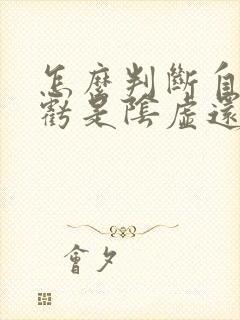 怎麼判斷自
虧是陰虛還
會夕